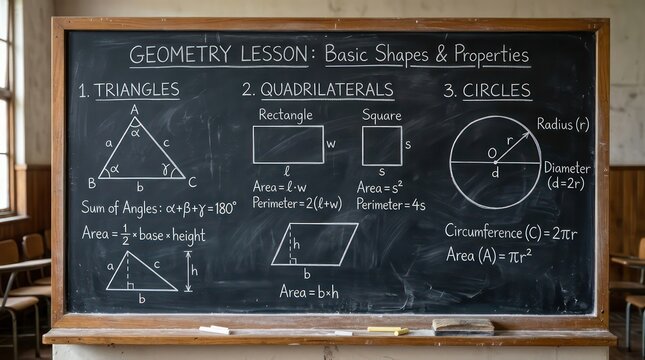 GEOMETRY LESSON: Basic Shapes & Properties
1. TRIANGLES
A
α
a
c
α
γ
B
b
C
Sum of Angles: α+β+γ=180°
Area = 1/2 × base × height
a
c
h
b
2. QUADRILATERALS
Rectangle
w
ℓ
Area = ℓ·w
Perimeter = 2(ℓ+w)
Square
s
s
Area = s²
Perimeter = 4s
h
b
Area = b×h
3. CIRCLES
Radius (r)
r
O
d
Diameter
(d=2r)
Circumference (C) = 2πr
Area (A) = πr²